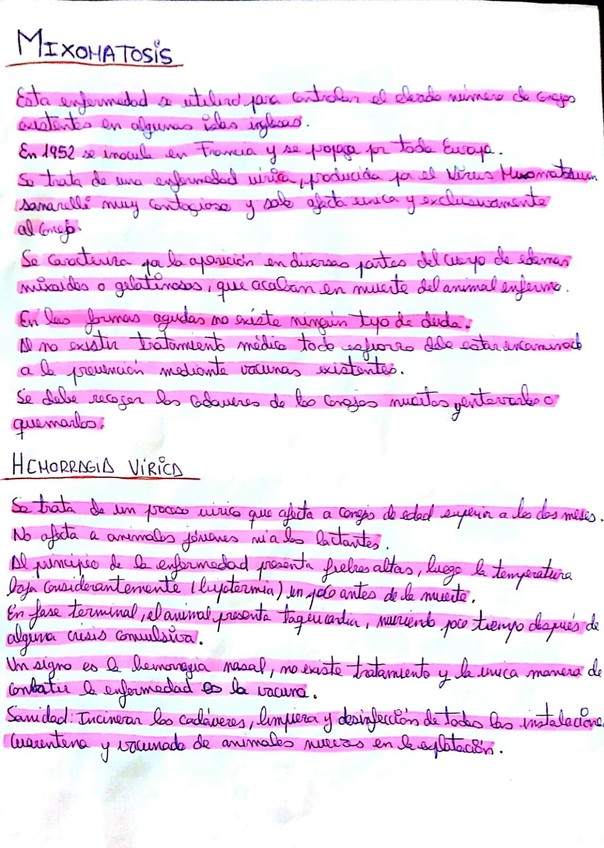 MIXOMATOSIS
Esta enfermedad se utilizó para controlar el elevado número de conejos
existentes en algunas islas inglesas.
En 1952 se inocula en Francia y se propaga por toda Europa.
Se trata de una enfermedad vírica, producida por el Virus
sanarelli muy contagiosa y solo afecta unica y exclusivamente
al conejo.
Se caracteriza por la aparición en diversas partes del cuerpo de edemas
mixoides o gelatinosos, que acaban en muerte del animal enfermo.
En las formas agudas no existe ningún tipo de duda.
Al no existir tratamiento médico todo esfuerzo debe estar encaminado
a la prevención mediante vacunas existentes.
Se debe recoger los cadaveres de los conejos muertos y enterrarlos o
quemarlos.
HEMORRAGIA VÍRICA
Se trata de un proceso vírico que afecta a conejos de edad superior a los dos meses.
No afecta a animales jóvenes ni a los lactantes.
Al principio de la enfermedad presenta fiebres altas, luego la temperatura
baja considerantemente (hipotermia) un poco antes de la muerte.
En fase terminal, el animal presenta taquicardia, muriendo poco tiempo después de
alguna crisis convulsiva.
Un signo es la hemorragia nasal, no existe tratamiento y la unica manera de
combatir la enfermedad es la vacuna.
Sanidad: Incinerar los cadáveres, limpieza y desinfección de todas las instalaciones
cuarentena y vacunado de animales nuevos en la explotación.